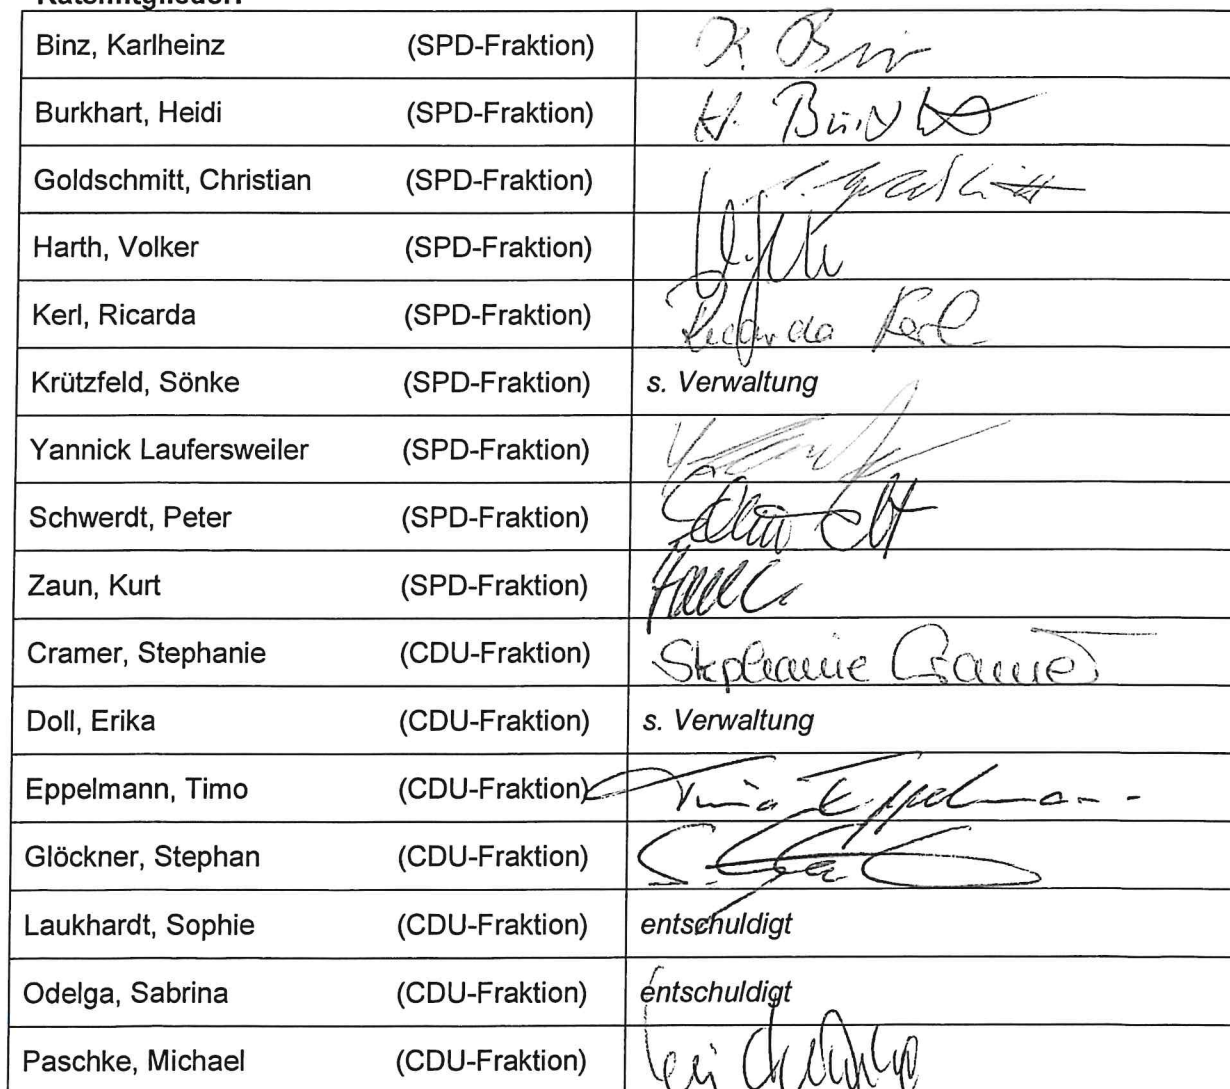 Ratsmitglieder:
Binz, Karlheinz (SPD-Fraktion) K. Binz
Burkhart, Heidi (SPD-Fraktion) H. Burkhart
Goldschmitt, Christian (SPD-Fraktion) C. Goldschmitt
Harth, Volker (SPD-Fraktion)
Kerl, Ricarda (SPD-Fraktion) Ricarda Kerl
Krützfeld, Sönke (SPD-Fraktion) s. Verwaltung
Yannick Laufersweiler (SPD-Fraktion)
Schwerdt, Peter (SPD-Fraktion)
Zaun, Kurt (SPD-Fraktion)
Cramer, Stephanie (CDU-Fraktion) Stephanie Cramer
Doll, Erika (CDU-Fraktion) s. Verwaltung
Eppelmann, Timo (CDU-Fraktion) Timo Eppelmann
Glöckner, Stephan (CDU-Fraktion)
Laukhardt, Sophie (CDU-Fraktion) entschuldigt
Odelga, Sabrina (CDU-Fraktion) entschuldigt
Paschke, Michael (CDU-Fraktion)